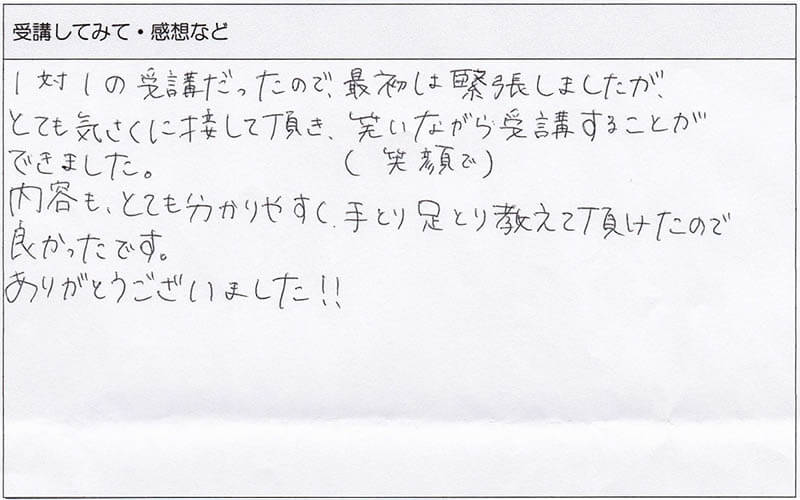 受講してみて・感想など
1対1の受講だったので、最初は緊張しましたが、
とても気さくに接して頂き、笑いながら受講することが
できました。(笑顔で)
内容も、とても分かりやすく、手とり足とり教えて頂けたので
良かったです。
ありがとうございました!!